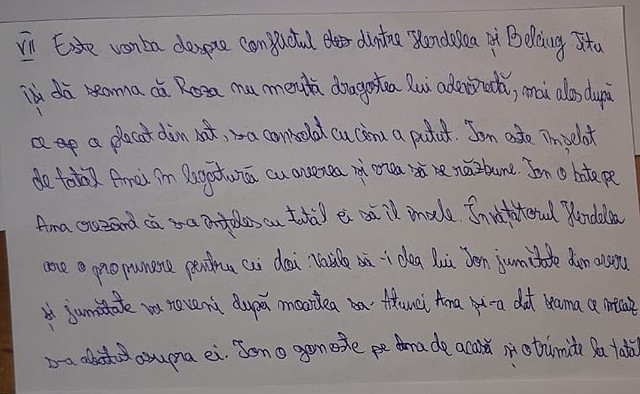 VII Este vorba despre conflictul dintre Herdelea și Belciug Titu
își dă seama că Roza nu merită dragostea lui adevărată, mai ales după
ce a plecat din sat, s-a consolat cu cine a putut. Ion este înșelat
de tatăl Anei în legătură cu averea și vrea să se răzbune. Ion o bate pe
Ana crezând că s-a înțeles cu tatăl ei să îl înșele. Învățătorul Herdelea
are o propunere pentru cei doi. Vasile să-i dea lui Ion jumătate din avere
și jumătate va reveni după moartea sa. Atunci Ana și-a dat seama ce necaz
s-a abătut asupra ei. Ion o gonește pe Ana de acasă și o trimite la tatăl